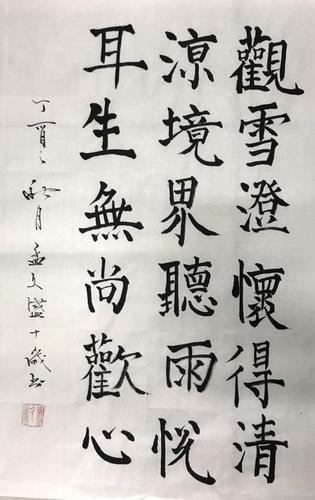 觀雪澄懷得清
涼境界聽雨悦
耳生無尚歡心
丁酉之秋月孟文盛十歲书